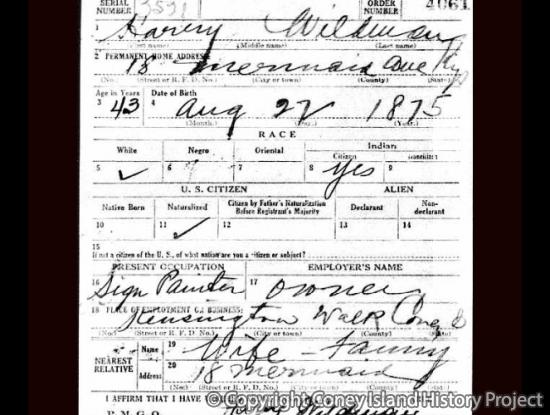 SERIAL NUMBER 3591 ORDER NUMBER 4061
1 Harry Wildman
(First name) (Middle name) (Last name)
2 PERMANENT HOME ADDRESS:
18 Mermaid Ave
(No.) (Street or R. F. D. No.) (City or town) (County) (State)
Age in Years Date of Birth
3 43 4 Aug 22 1875
(Month.) (Day.) (Year.)
RACE
White Negro Oriental Indian
Citizen Noncitizen
5 ✓ 6 7 8 yes 9
U. S. CITIZEN ALIEN
Native Born Naturalized Citizen by Father's Naturalization Before Registrant's Majority Declarant Non-declarant
10 11 ✓ 12 13 14
15
If not a citizen of the U. S., of what nation are you a citizen or subject?
PRESENT OCCUPATION EMPLOYER'S NAME
16 Sign Painter 17 owner
18 PLACE OF EMPLOYMENT OR BUSINESS:
Kensington Walk Coney
(No.) (Street or R. F. D. No.) (City or town) (County) (State)
NEAREST RELATIVE Name 19 Wife - Fanny
Address 20 18 Mermaid
(No.) (Street or R. F. D. No.) (City or town) (County) (State)
I AFFIRM THAT I HAVE
P. M. G. O.
© Copyright Coney Island History Project